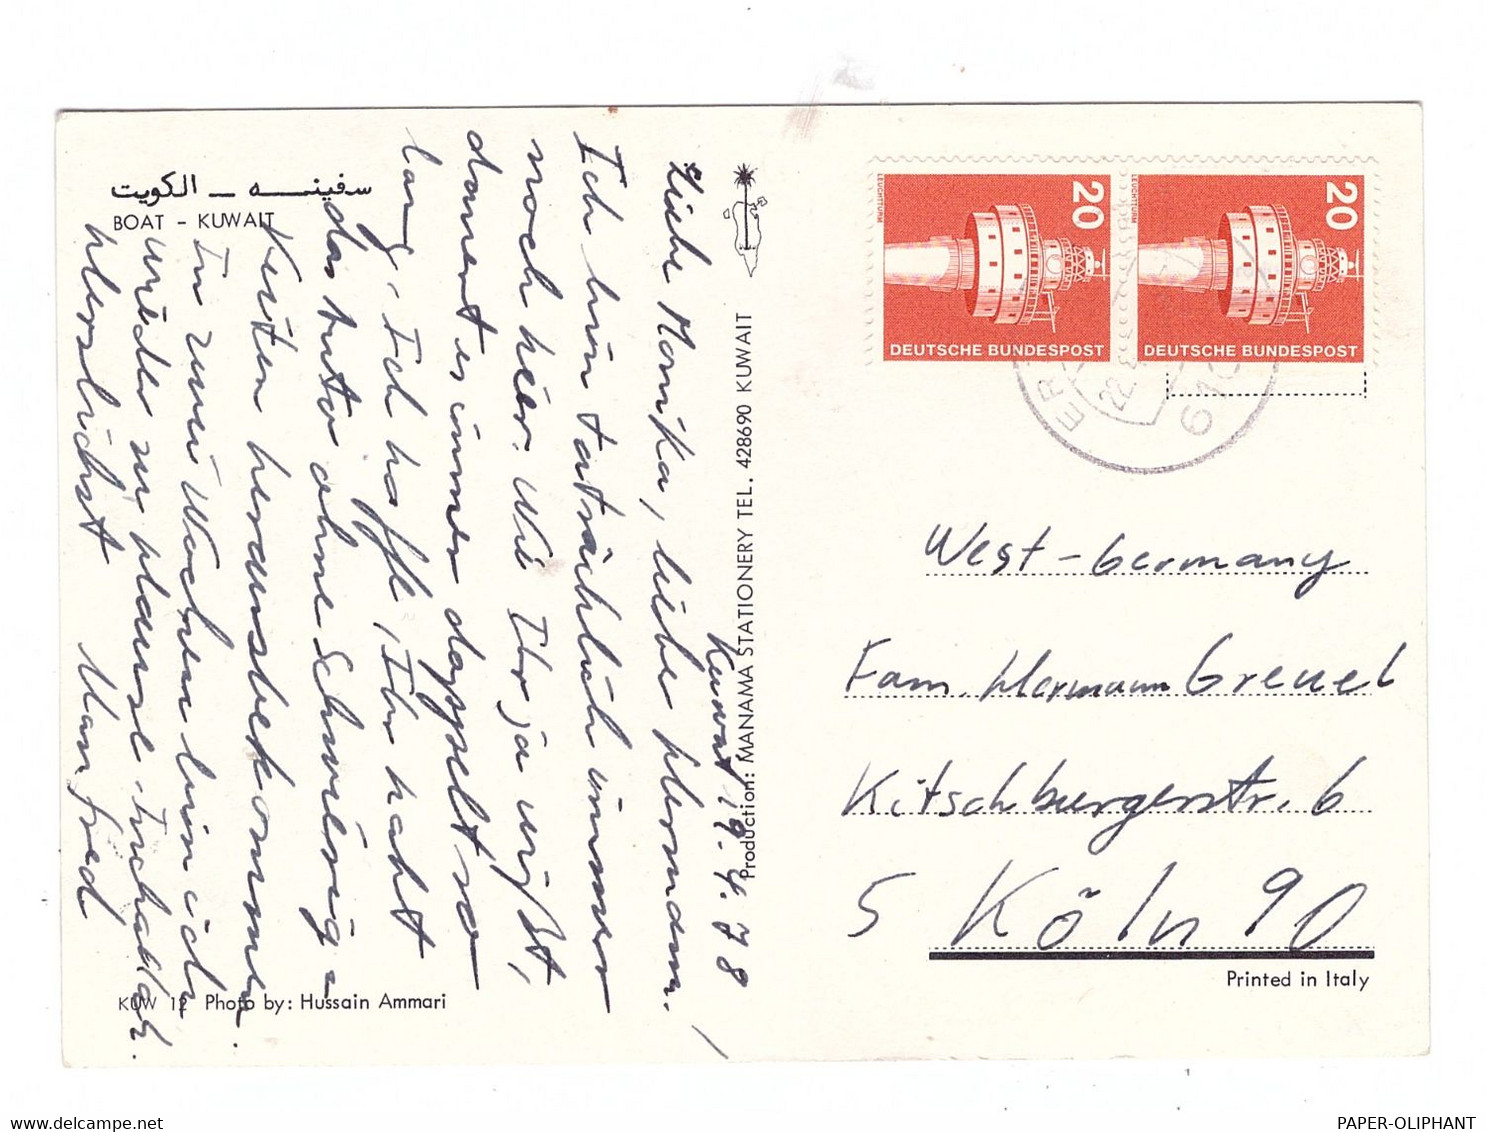 سفينـــه ــ الكويت
BOAT - KUWAIT
Kuwait 19.4.78
Liebe Monika, lieber Hermann.
Ich bin tatsächlich immer
noch hier. Wie Ihr ja wißt,
dauert es immer doppelt so
lang. Ich hoffe, Ihr habt
das Auto ohne Schwierig=
keiten herausbekommen.
In zwei Wochen bin ich
wieder zu Hause. Inchallah.
Herzlichst Manfred
KUW 12 Photo by: Hussain Ammari
Production: MANAMA STATIONERY TEL. 428690 KUWAIT
20
LEUCHTTURM
DEUTSCHE BUNDESPOST
20
LEUCHTTURM
DEUTSCHE BUNDESPOST
22.
West-Germany
Fam. Hermann Greuel
Kitschburgerstr. 6
5 Köln 90
Printed in Italy
www.delcampe.net
PAPER-OLIPHANT